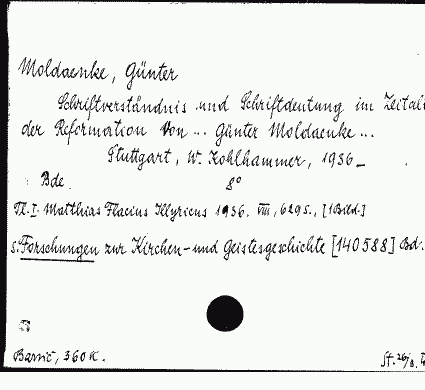 Moldaenke, Günter
Schriftverständnis und Schriftdeutung im Zeital
der Reformation von ... Günter Moldaenke ...
Stuttgart, W. Kohlhammer, 1936_
Bde. 8°
Tl. I. Matthias Flacius Illyricus 1936. VIII, 629 S., [1 Bild.]
s. Forschungen zur Kirchen- und Geistesgeschichte [140588] Bd.
360 K. St. 26/8.